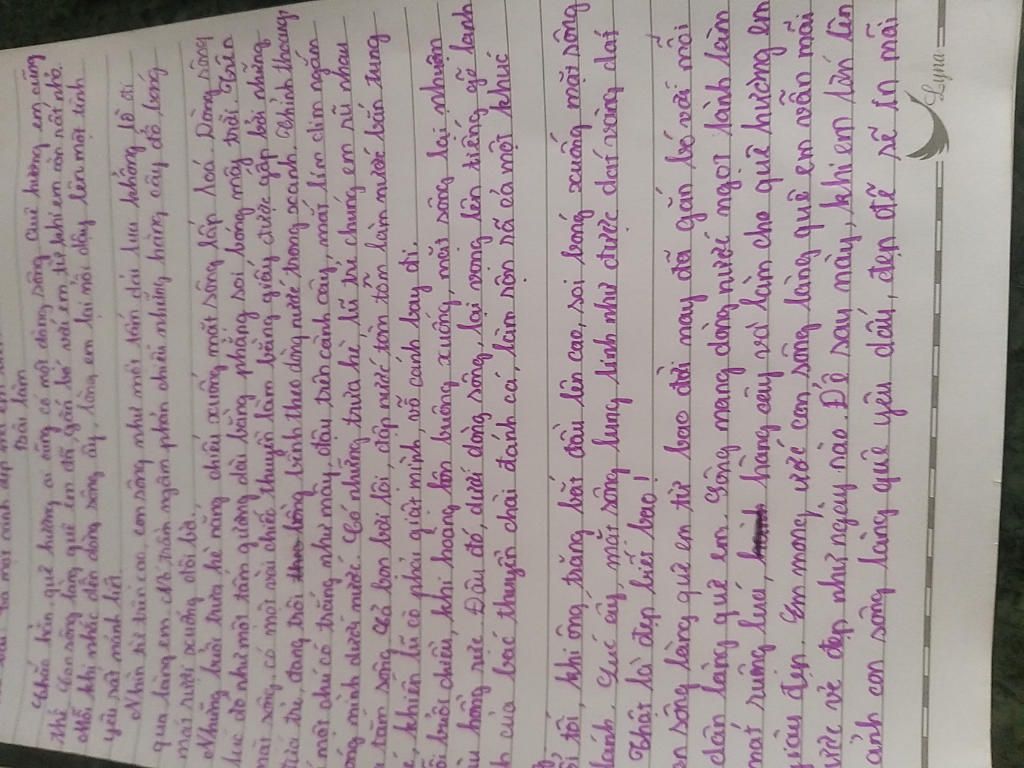 tả một cảnh đẹp mà em
Bài làm
Khắp bản quê hương ai cũng có một dòng sông. Quê hương em cũng
thế. Con sông làng quê em đã gắn bó với em từ khi em còn rất nhỏ.
Mỗi khi nhắc đến dòng sông ấy, lòng em lại nôi dậy lên một tình
yêu sâu mãnh liệt.
Nhìn từ trên cao, con sông như một tấm dải lụa khổng lồ đi
qua làng em. Nó trầm ngâm phản chiếu những hàng cây đổ bóng
mát rười xuống đôi bờ.
Những buổi trưa hè nắng chiếu xuống mặt sông lấp loá. Dòng sông
lúc đó như một tấm gương dài bằng phẳng soi bóng mây trời. Trên
mặt sông, có một vài chiếc thuyền làm bằng giấy được gấp bởi những
đứa trẻ, đang trôi bồng bềnh theo dòng nước trong xanh. Thỉnh thoảng,
một chú cò trắng như mây, đậu trên cành cây, mắt lim dim ngắm
bóng mình dưới nước. Có những trưa hè, lũ trẻ chúng em rủ nhau
tắm sông. Cả bọn bơi lội, đập nước tồm tỗm làm nước bắn tung
, khiến lũ cò phải giật mình, vỗ cánh bay đi.
buổi chiều, khi hoàng hôn buông xuống, mặt sông lại nhuộm
màu hồng rực. Đâu đó, dưới dòng sông, lại vọng lên tiếng gõ lanh
canh của bác thuyền chài đánh cá, làm rộn rã cả một khúc
sông
tối, khi ông trăng bắt đầu lên cao, soi bóng xuống mặt sông
lánh. Lúc ấy, mặt sông lung linh như được dát vàng dát
Thật là đẹp biết bao!
Con sông làng quê em từ bao đời nay đã gắn bó với mỗi
dân làng quê em. Sông mang dòng nước ngọt lành làm
mát ruộng lúa, hàng cây và làm cho quê hương em
giàu đẹp. Em mong ước con sông làng quê em vẫn mãi
được vẻ đẹp như ngày nào. Để sau này, khi em lớn lên
cảnh con sông làng quê yêu dấu, đẹp đẽ sẽ in mãi
Lyna